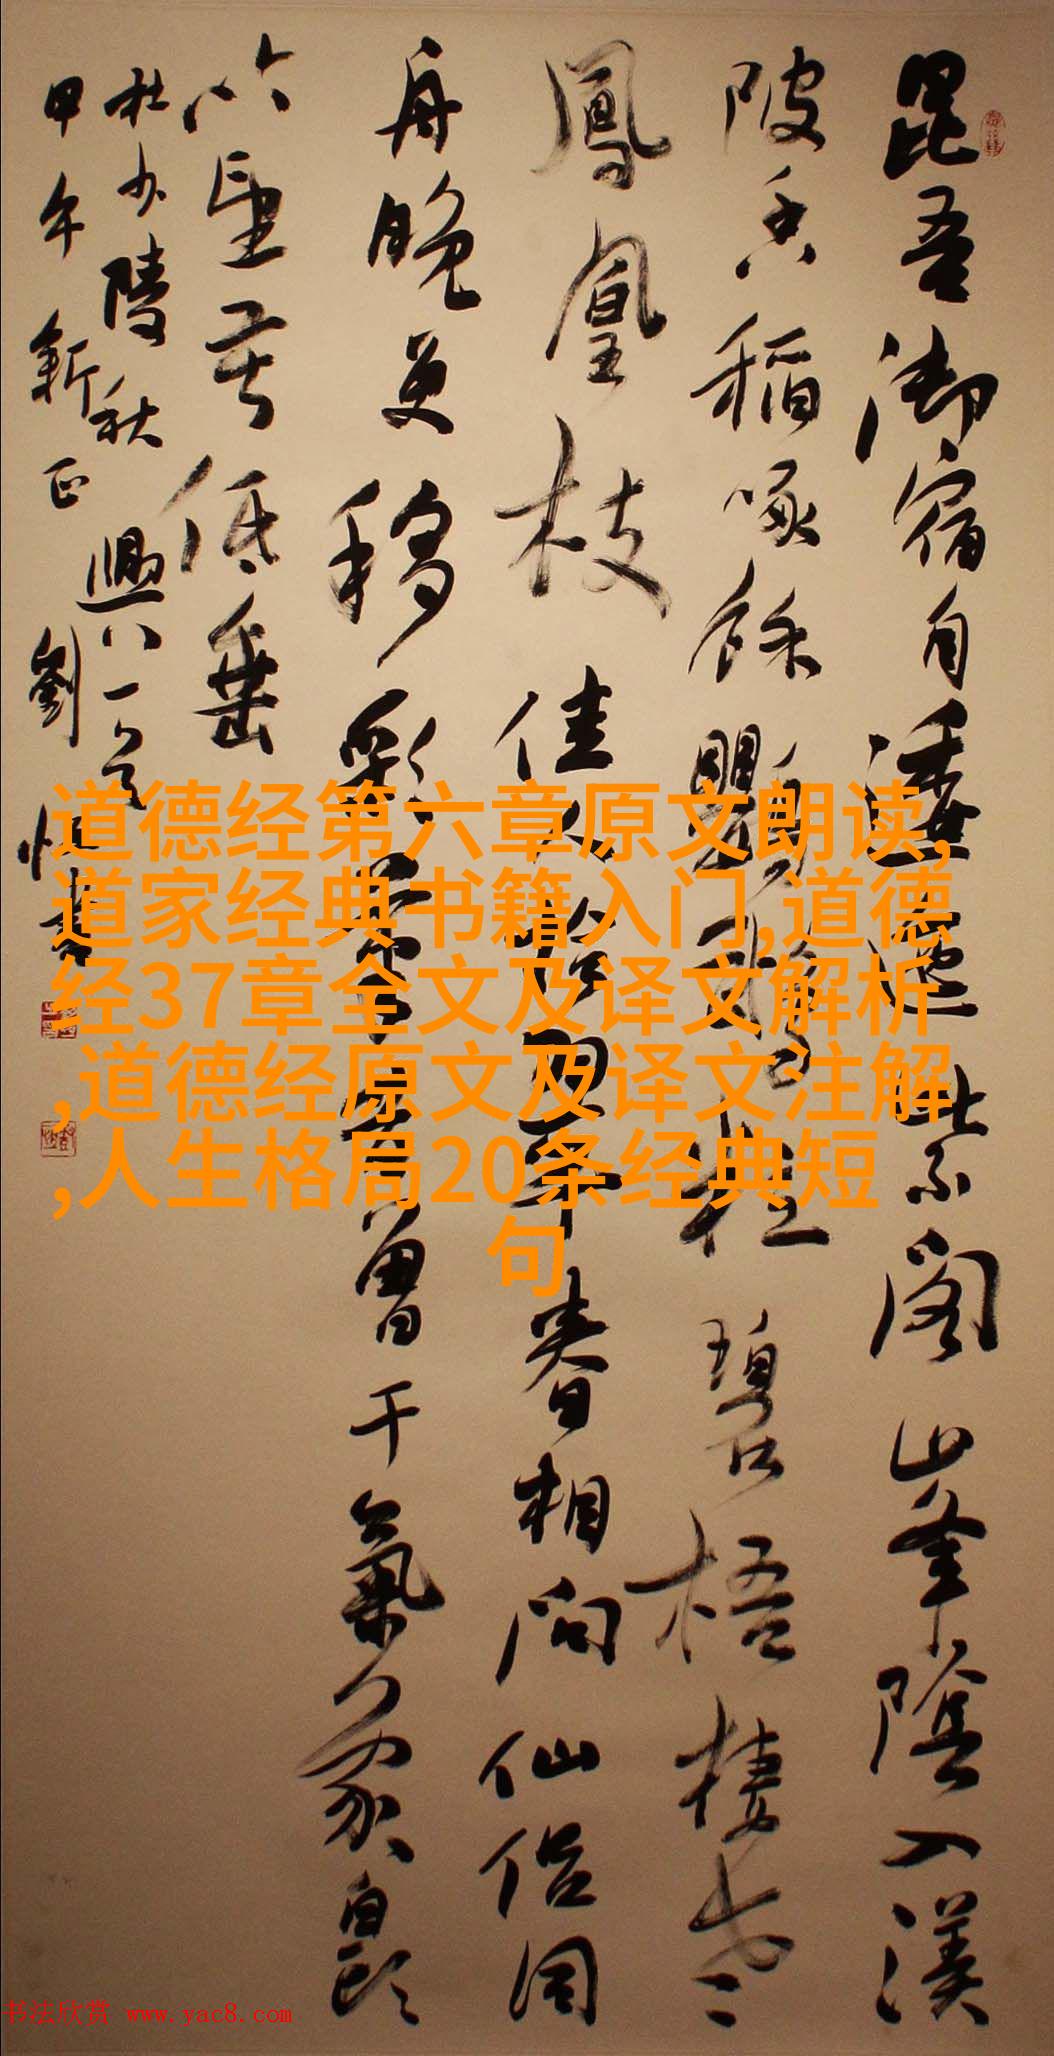 昆吾御宿自逶迤紫閣山峯陰入渼
陂香稻啄餘鸚鵡粒碧梧棲老
鳳凰枝佳人拾翠春相問仙侶同
舟晚更移彩筆昔曾干氣象白頭
吟望苦低垂
杜少陵秋興八一首
甲午新正劉恒書
道德经第六章原文朗读,
道家经典书籍入门,道德
经37章全文及译文解析
,道德经原文及译文注解
,人生格局20条经典短
句
书法欣赏 www.yac8.com